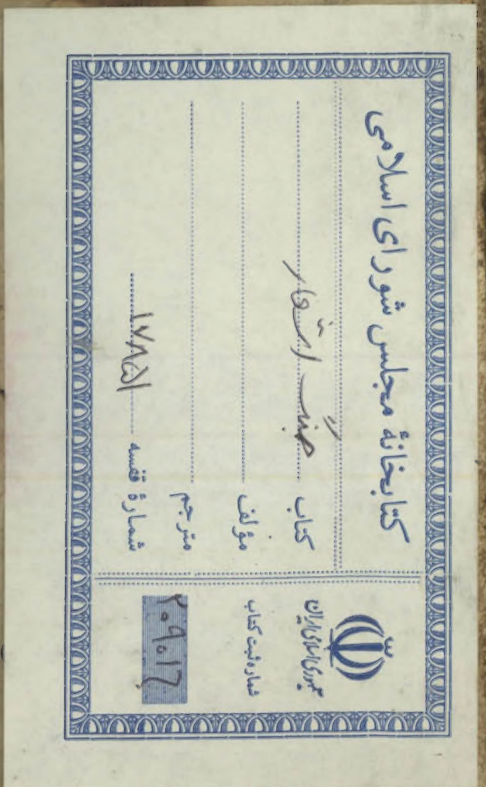 کتابخانهٔ مجلس شورای اسلامی
کتاب جنگ اشعار
مؤلف
مترجم
شمارهٔ قفسه ۱۷۸۵۱
جمهوری اسلامی ایران
شماره ثبت کتاب
۲۰۹۰۱۶